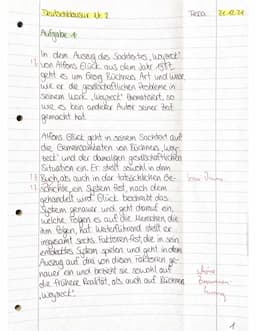 Deutschklausur Nr. 2
Aufgabe 1:
In dem Auszug des Sachtextes „Woyzeck"
von Alfons Glück aus dem Jahr
geht es um Georg Büchners Art und Weise,
wie er die gesellschaftlichen Probleme in
seinem Werk „Woyzeck" thematisiert, so
wie es kein anderer Autor seiner Zeit
gemacht hat.
Alfons Glück geht in seinem Sachtext auf
die Gemeinsamkeiten von Büchners „Woy-
zeck" und der damaligen gesellschaftlichen
Situation ein. Er stellt sowohl in dem
Buch, als auch in der tatsächlichen Ge-
schichte ein System fest, nach dem
gehandelt wird. Glück beschreibt das
System genauer und geht darauf ein,
welche Folgen es auf die Menschen, die
ihm folgen, hat. Weiterführend stellt er
insgesamt sechs Faktoren fest, die in sein
entdecktes System spielen und geht in dem
Auszug auf drei von diesen Faktoren ge-
nauer ein und bezieht sie sowohl auf
die frühere Realität, als auch auf Büchners
„Woyzeck".
1